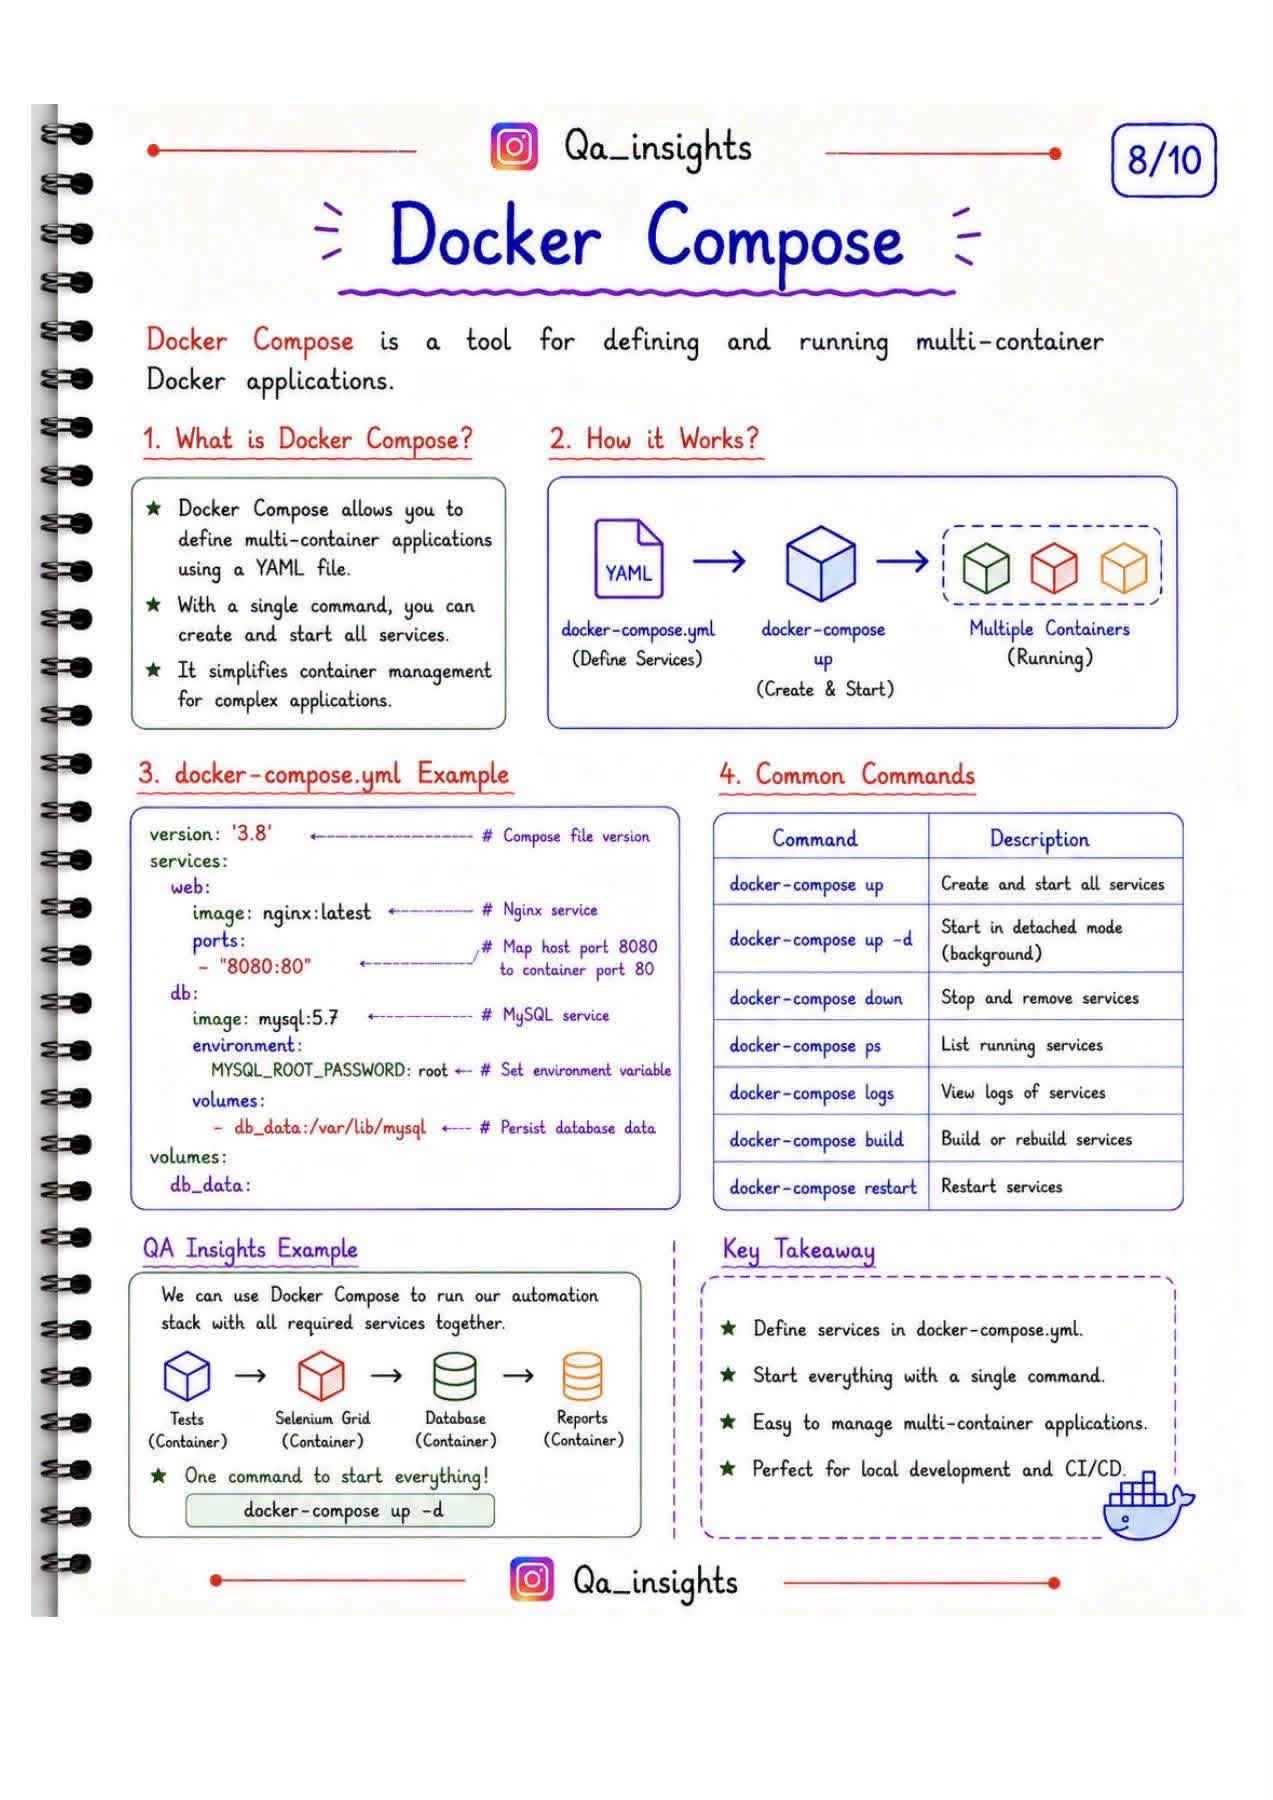 Qa_insights
8/10
Docker Compose
Docker Compose is a tool for defining and running multi-container
Docker applications.
1. What is Docker Compose?
★ Docker Compose allows you to
define multi-container applications
using a YAML file.
★ With a single command, you can
create and start all services.
★ It simplifies container management
for complex applications.
2. How it Works?
YAML
docker-compose.yml
(Define Services)
docker-compose
up
(Create & Start)
Multiple Containers
(Running)
3. docker-compose.yml Example
version: '3.8' # Compose file version
services:
web:
image: nginx:latest # Nginx service
ports: # Map host port 8080
- "8080:80" to container port 80
db:
image: mysql:5.7 # MySQL service
environment:
MYSQL_ROOT_PASSWORD: root # Set environment variable
volumes:
- db_data:/var/lib/mysql # Persist database data
volumes:
db_data:
4. Common Commands
Command Description
docker-compose up Create and start all services
docker-compose up -d Start in detached mode
(background)
docker-compose down Stop and remove services
docker-compose ps List running services
docker-compose logs View logs of services
docker-compose build Build or rebuild services
docker-compose restart Restart services
QA Insights Example
We can use Docker Compose to run our automation
stack with all required services together.
Tests
(Container)
Selenium Grid
(Container)
Database
(Container)
Reports
(Container)
★ One command to start everything!
docker-compose up -d
Key Takeaway
★ Define services in docker-compose.yml.
★ Start everything with a single command.
★ Easy to manage multi-container applications.
★ Perfect for local development and CI/CD.
Qa_insights